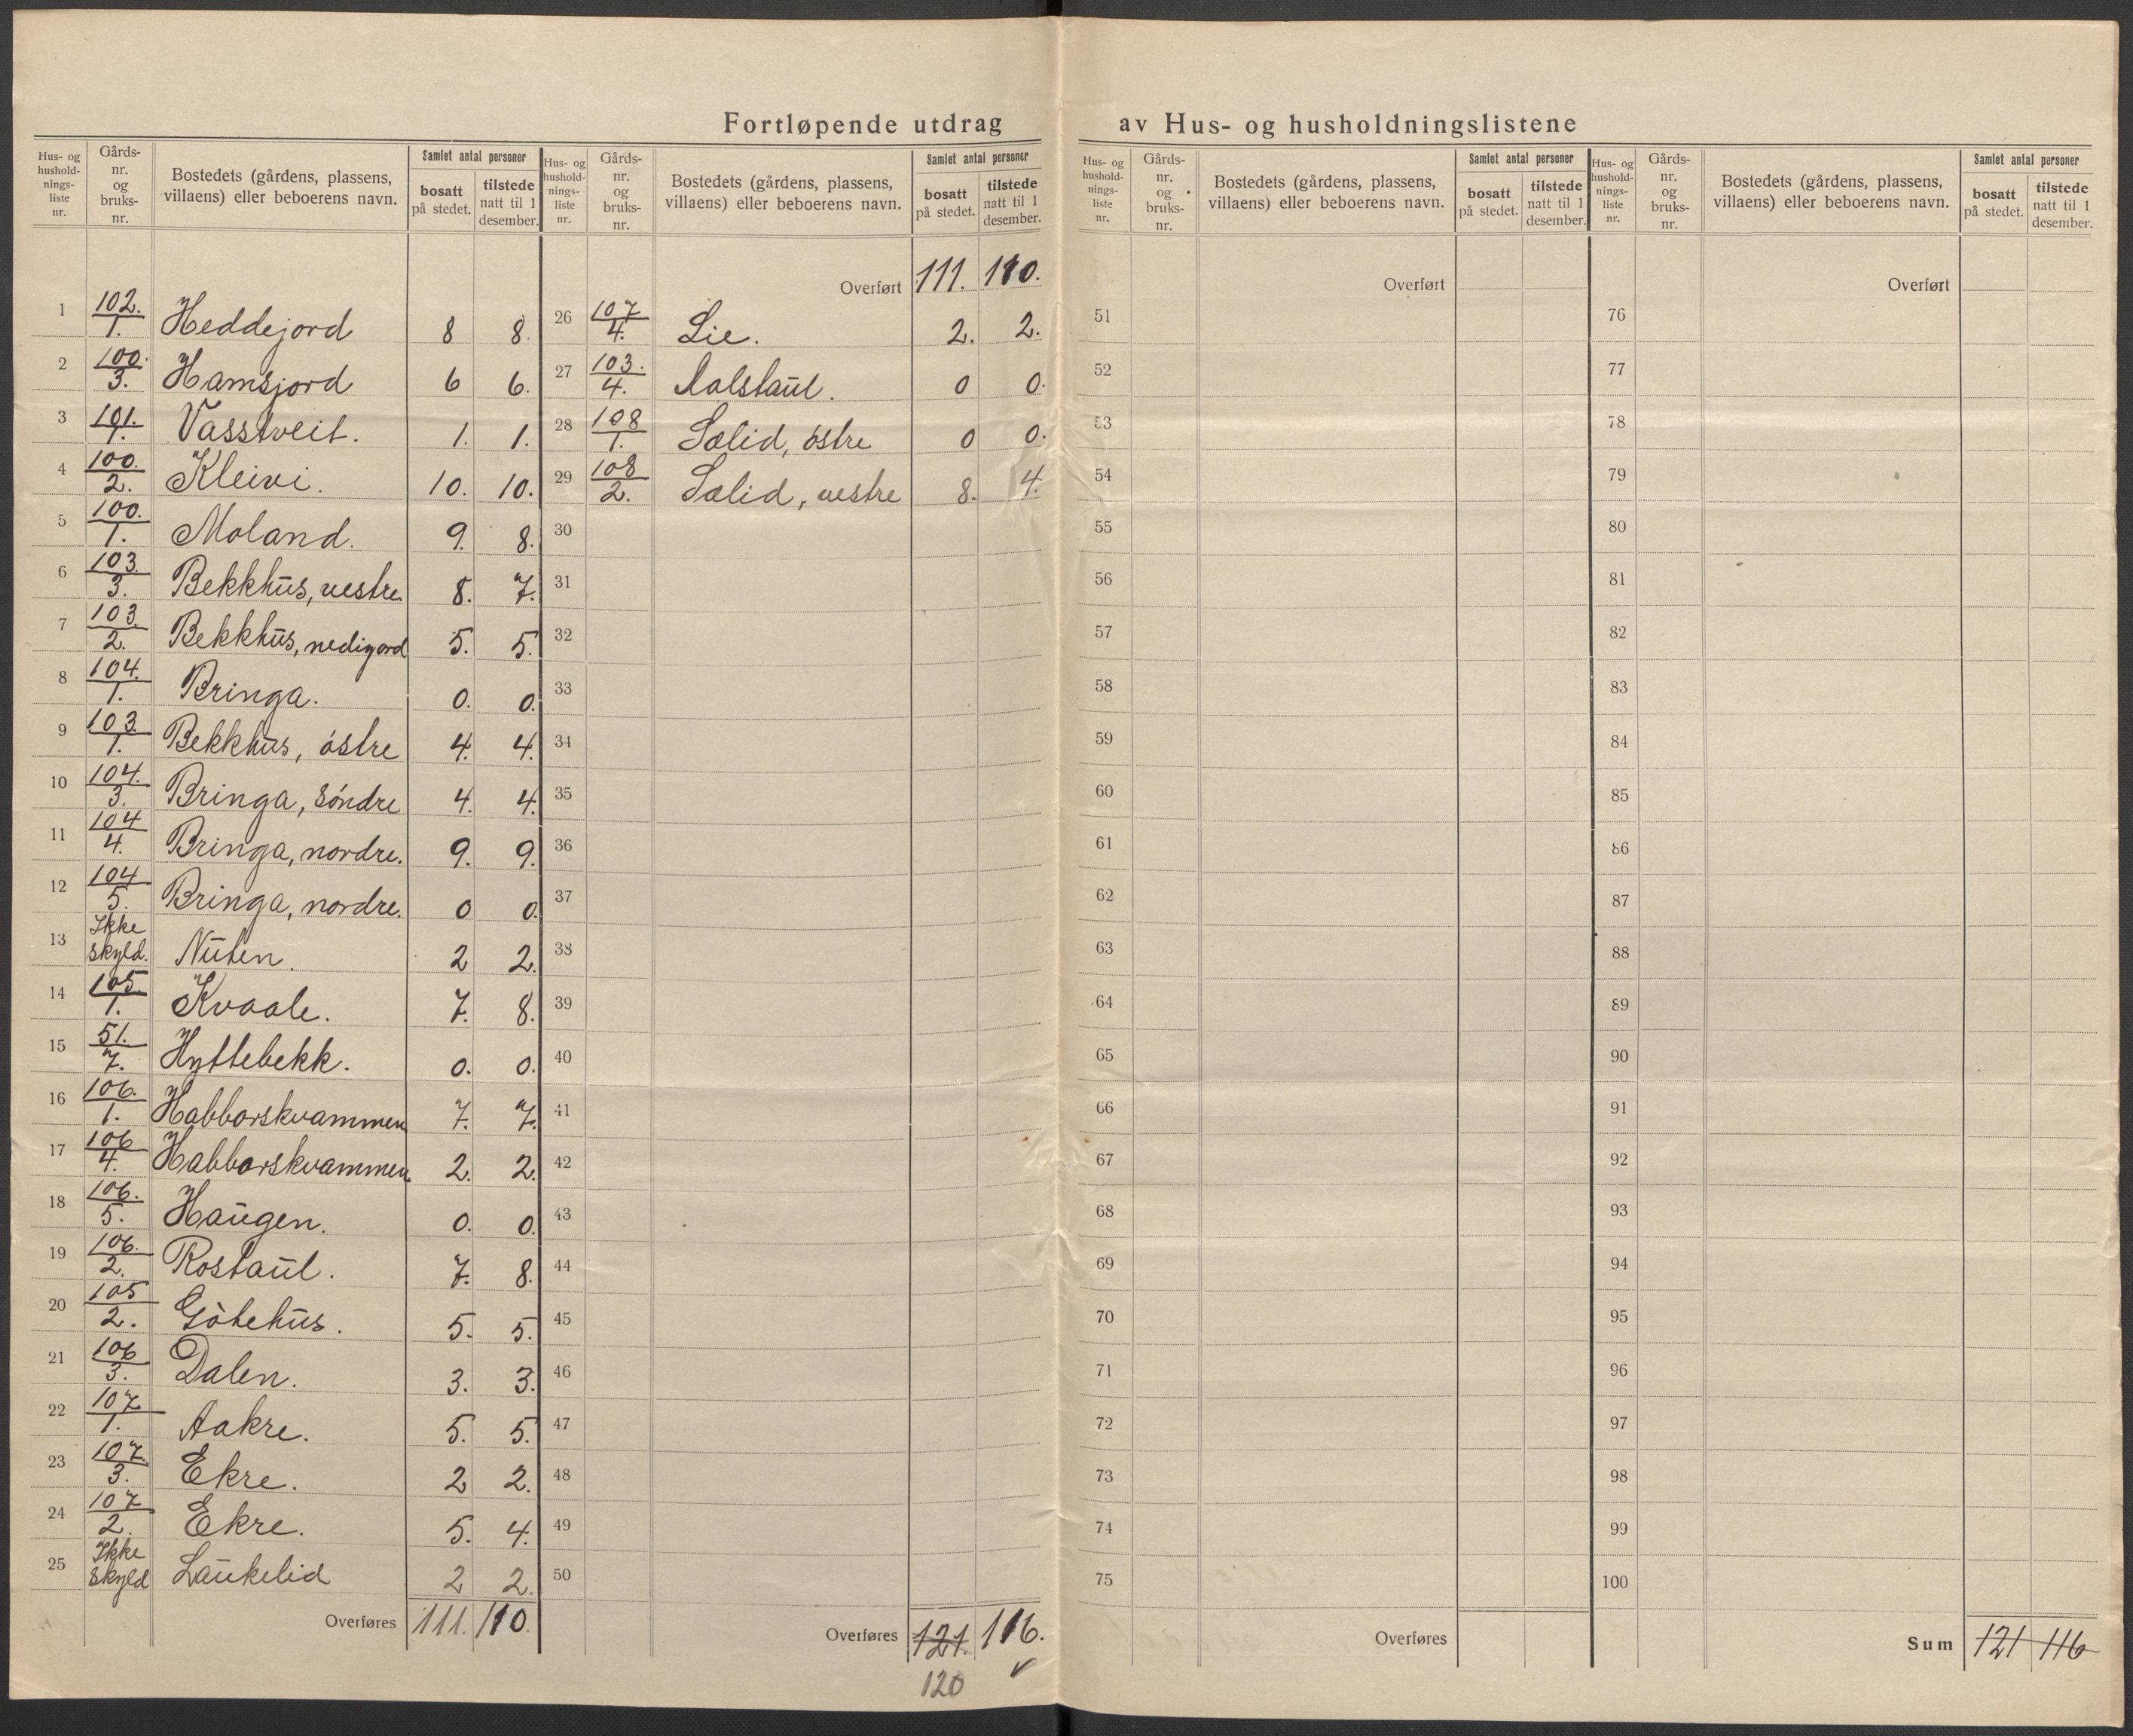 Fortløpende utdrag av Hus- og husholdningslistene
Hus- og hushold-nings-liste nr. Gårds-nr. og bruks-nr. Bostedets (gårdens, plassens, villaens) eller beboerens navn. Samlet antal personer bosatt på stedet. tilstede natt til 1 desember.
Hus- og hushold-nings-liste nr. Gårds-nr. og bruks-nr. Bostedets (gårdens, plassens, villaens) eller beboerens navn. Samlet antal personer bosatt på stedet. tilstede natt til 1 desember.
Hus- og hushold-nings-liste nr. Gårds-nr. og bruks-nr. Bostedets (gårdens, plassens, villaens) eller beboerens navn. Samlet antal personer bosatt på stedet. tilstede natt til 1 desember.
Hus- og hushold-nings-liste nr. Gårds-nr. og bruks-nr. Bostedets (gårdens, plassens, villaens) eller beboerens navn. Samlet antal personer bosatt på stedet. tilstede natt til 1 desember.
1 102./1. Heddejord 8 8.
2 100./3. Hamsjord 6 6.
3 101./1. Vasstveit. 1. 1.
4 100./2. Kleivi. 10. 10.
5 100./1. Moland. 9. 8.
6 103./3. Bekkhus, vestre 8. 7.
7 103./2. Bekkhus, nedigord 5. 5.
8 104./1. Bringa. 0. 0.
9 103./1. Bekkhus, östre 4. 4.
10 104./3. Bringa, söndre 4. 4.
11 104/4. Bringa, nordre. 9. 9.
12 104/5. Bringa, nordre. 0 0.
13 Ikke skyld. Nuten. 2 2.
14 105./1. Kvaale. 7. 8.
15 51./7. Hyttebekk. 0. 0.
16 106./1. Habborskvammen 7. 7.
17 106/4. Habborskvammen. 2. 2.
18 106./5. Haugen. 0. 0.
19 106./2. Rostaul. 7. 8.
20 105/2. Götehus. 5. 5.
21 106/3. Dalen. 3. 3.
22 107/1. Aakre. 5. 5.
23 107./3. Ekre. 2 2.
24 107/2. Ekre. 5. 4.
25 Ikke skyld Laukelid 2 2.
Overføres 111. 110.
Overført 111. 110.
26 107/4. Lie. 2. 2.
27 103./4. Aalstaul. 0 0.
28 108/1. Sælid, östre 0 0.
29 108/2. Sælid, vestre 8. 4.
30
31
32
33
34
35
36
37
38
39
40
41
42
43
44
45
46
47
48
49
50
Overføres 121. 116.
120
Overført
51
52
53
54
55
56
57
58
59
60
61
62
63
64
65
66
67
68
69
70
71
72
73
74
75
Overføres
Overført
76
77
78
79
80
81
82
83
84
85
86
87
88
89
90
91
92
93
94
95
96
97
98
99
100
Sum 121 116